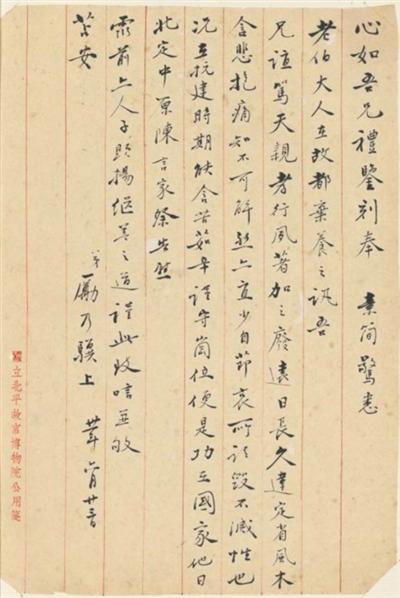 心如吾兄禮鑒刻奉 素簡驚悉
老伯大人在故都棄養之訊吾
兄誼篤天親孝行夙著加之廢遠日長久違定省風木
含悲抱痛知不可解然亦宜少自節哀所謂毀不滅性也
况在抗建時期能含苦茹辛謹守崗位便是功在國家他日
北定中原陳言家祭告慰
靈前亦人子顯揚繼善之道謹此致唁並頌
苦安
弟勵乃驥上 月廿
國立北平故宮博物院公用箋